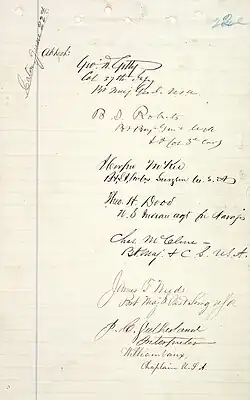 Attest:
Geo. W. Getty
Col 37th Inf.
Bt Maj. Genl. U.S.A
B. S. Roberts
Bt Brg. Gen.
Lt Col 3d Cav
J. Cooper McKee
Bt Lt. Col Surgeon U.S.A
Theo. H. Dodd
U.S. Indian agt for Navajos
Chas. McClure
Bt. Maj. & C.S. U.S.A.
James F. Weeds
Bt. Maj. & Asst. Surg. U.S.A
J. C. Sutherland
Interpreter
William Vaux
Chaplain U.S.A